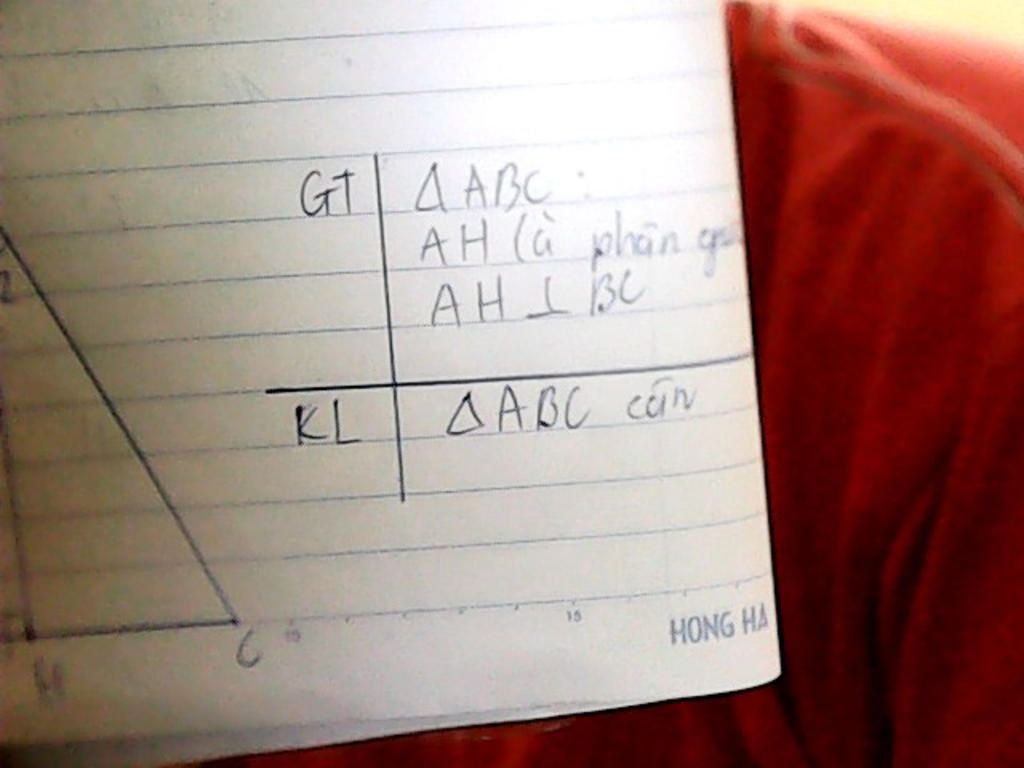 GT ΔABC:
AH là phân
AH ⊥ BC
KL ΔABC cân
H C
10 15
HONG HA